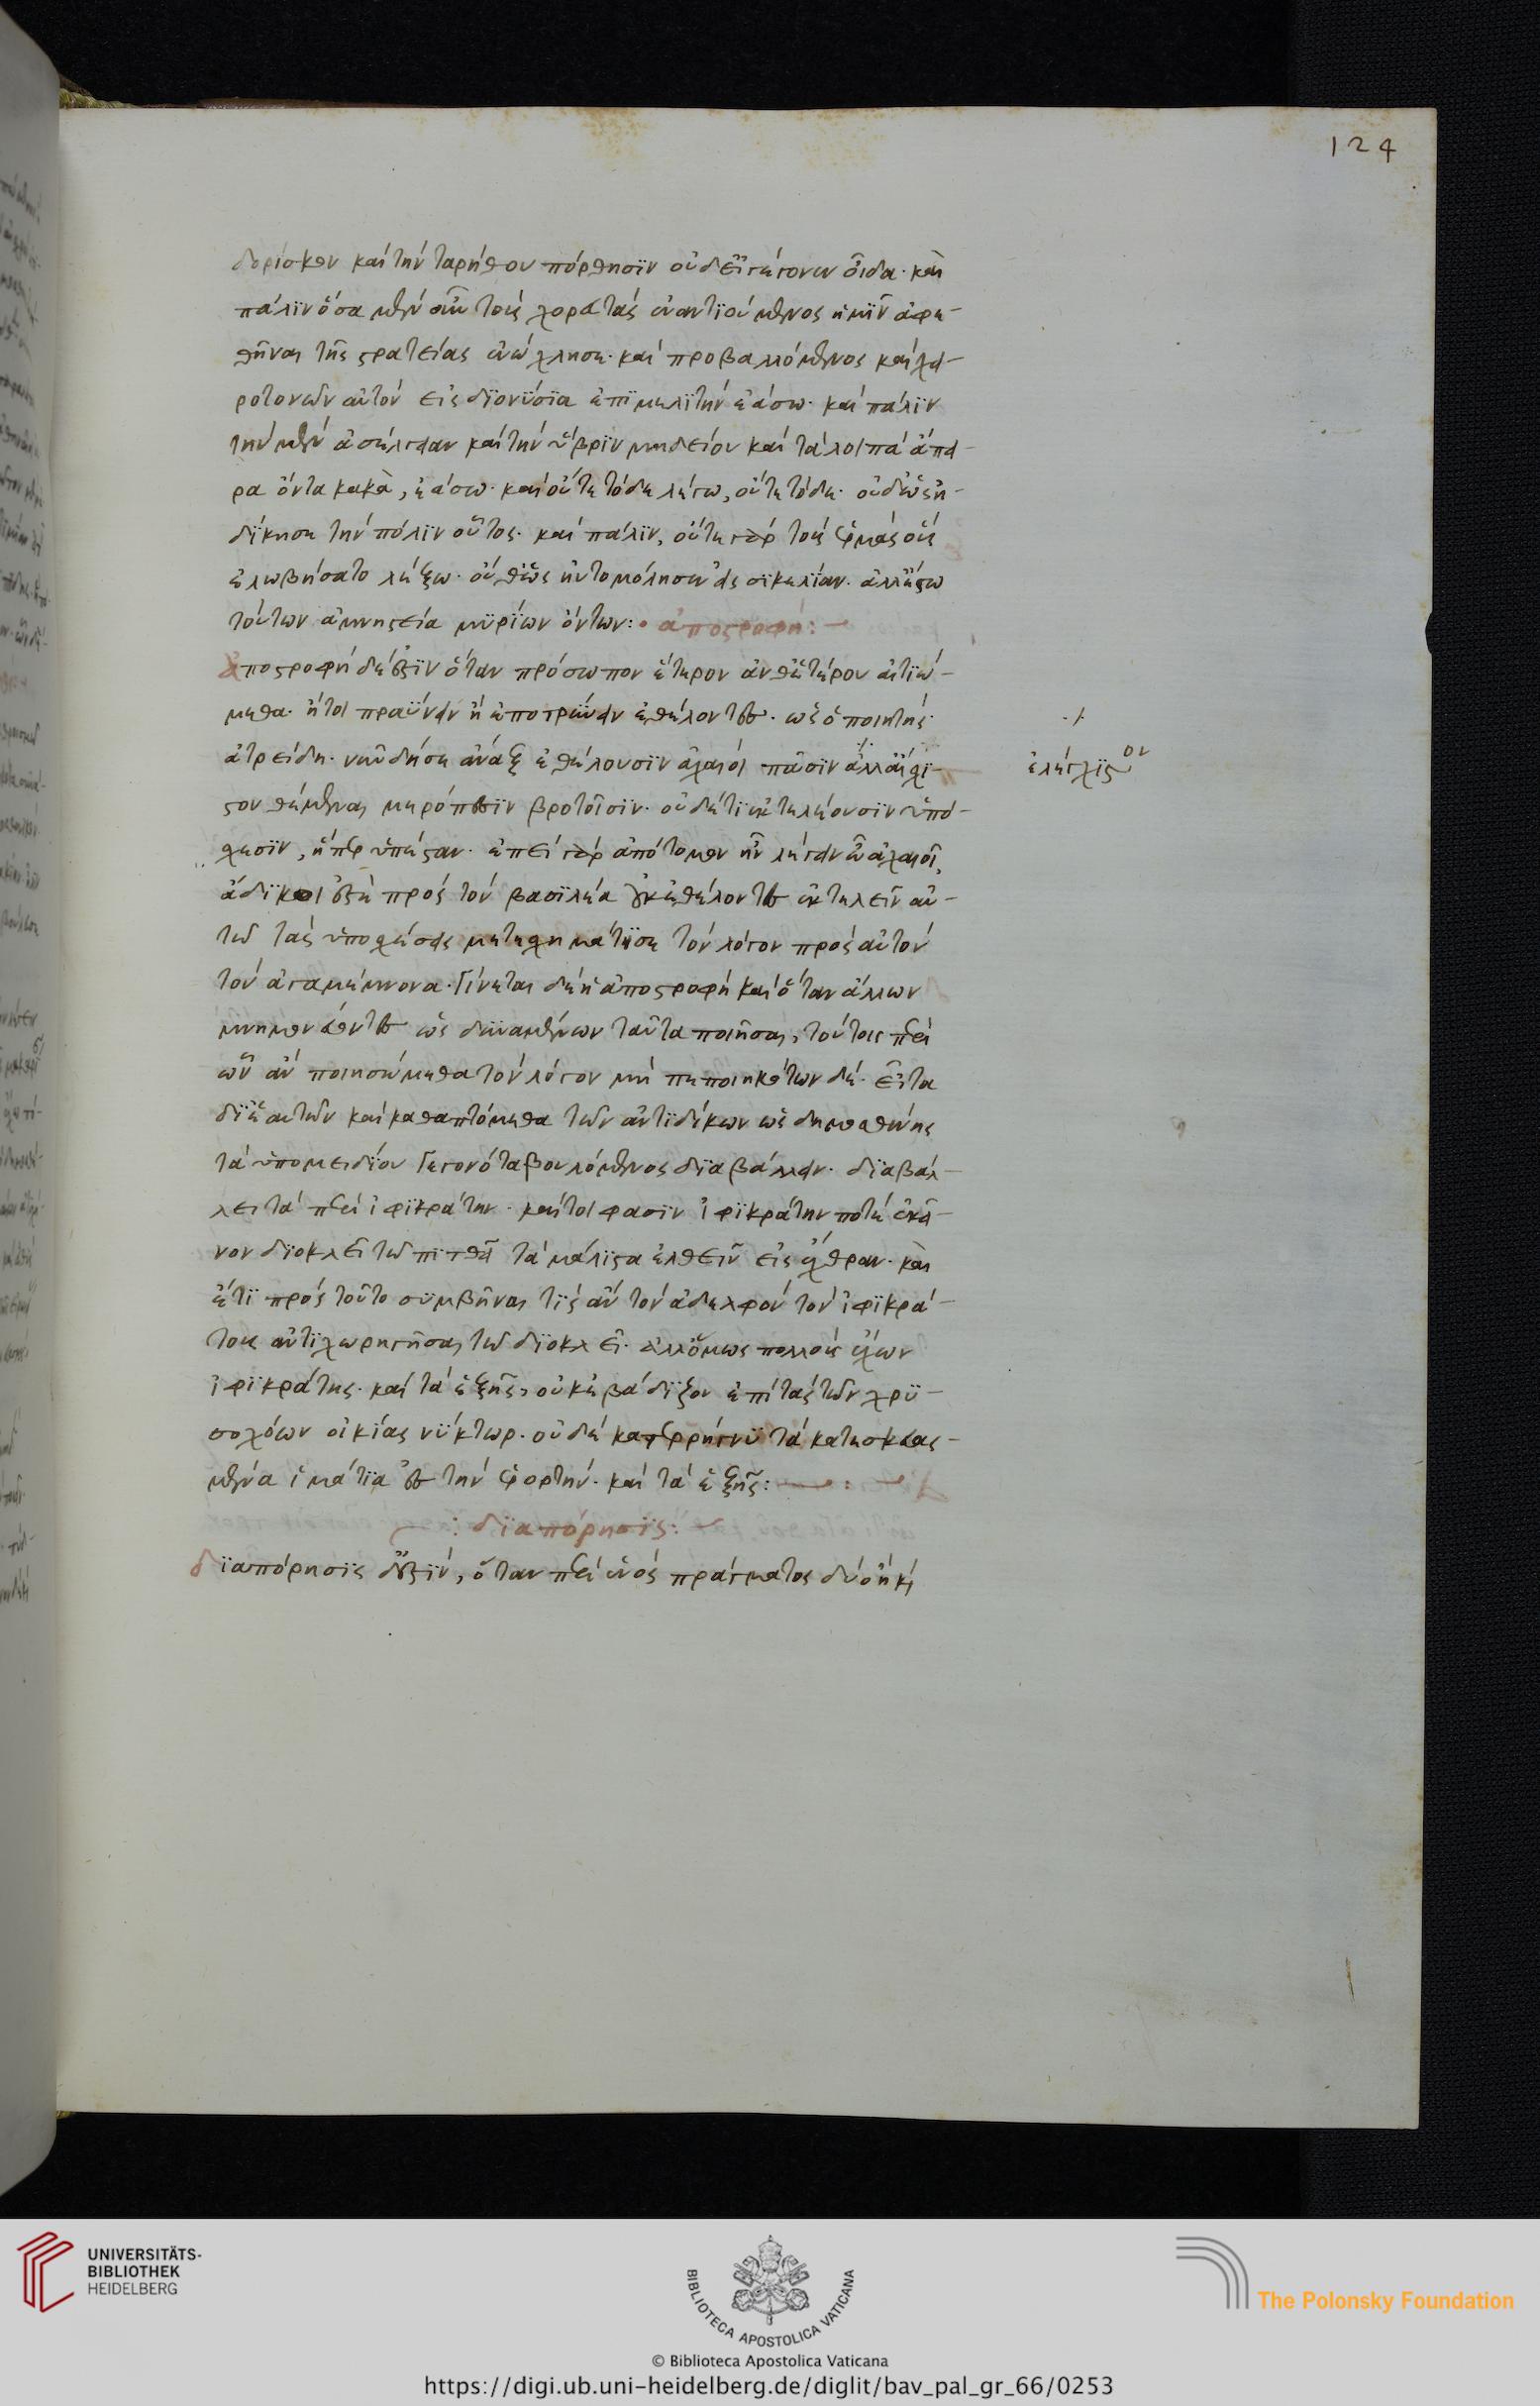 124
δορίσκον καὶ τὴν ταρήθου πόρθησϊν οὐδεἰ γέγονεν οἶδα· καὶ
πάλϊν ὅσα μὲν οὖν τοὺς χορευτὰς ἐναντϊούμενος ἡμῖν ἀφε-
θῆναι τῆς στρατείας ἠνώχλησε· καὶ προβαλλόμενος καὶ χει-
ροτονεῖν αὑτὸν εἰς δϊονύσϊα ἐπϊμελϊτὴν ἐάσω· καὶ πάλϊν
τὴν μὲν ἀσέλγειαν καὶ τὴν ὕβρϊν μηδείου καὶ τὰ λοιπὰ ἄπει-
ρα ὄντα κακὰ, ἐάσω· καὶ οὔτε τόδε λέγω, οὔτε τόδε· οὐδ' ὡς ἠ-
δίκησε τὴν πόλϊν οὗτος· καὶ πάλϊν, οὔτε γὰρ τοὺς ἑρμᾶς οὓς
ἐλωβήσατο λέξω· οὔθ' ὡς ηὐτομόλησεν εἰς σϊκελίαν· ἀλλ' ἔστω
τούτων ἀμνηστεία μυρίων ὄντων: · ἀποστροφή: —
ἀποστροφὴ δέ ἐστϊν ὅταν πρόσωπον ἕτερον ἀνθ' ἑτέρου αἰτϊώ-
μεθα· ἤτοι πραΰνειν ἢ ἐποτρύνειν ἐθέλοντες· ὡς ὁ ποιητής·
ἀτρείδη· νῦν δή σε ἄναξ ἐθέλουσϊν ἀχαιοὶ πᾶσϊν ἀλλ' αἴσχϊ-
στον θέμεναι μερόπεσσϊν βροτοῖσϊν· οὐδέ τϊ ἐκτελέουσϊν ὑπό-
ἐλέγχϊστον
σχεσϊν, ἥπερ ὑπέσταν· ἐπεὶ γὰρ ἀπότομον ἦν λέγειν ὦ ἀχαιοὶ,
ἄδϊκοί ἐστὲ πρὸς τὸν βασϊλέα οὐκ ἐθέλοντες ἐκτελεῖν αὐ-
τῶ τὰς ὑποσχέσεις μετεσχημάτϊσε τὸν λόγον πρὸς αὐτὸν
τὸν ἀγαμέμνονα· Γίνεται δὲ ἡ ἀποστροφὴ καὶ ὅταν ἄλλων
μνημονεύοντες ὡς δυναμένων ταῦτα ποιῆσαι, τούτοις περὶ
ὧν ἂν ποιησώμεθα τὸν λόγον μὴ πεποιηκότων δέ· εἶτα
δϊ' ἑαυτῶν καὶ καθαπτόμεθα τῶν ἀντϊδίκων ὡς δημοσθένης
τὰ ὑπο μειδίου Γεγονότα βουλόμενος δϊαβάλλειν· δϊαβάλ-
λει τὰ περὶ ἰφϊκράτην· καίτοι φασὶν ἰφϊκράτην ποτὲ ἐκεῖ-
νον δϊοκλεῖ τῶ πϊτθεῖ τὰ μάλϊστα ἐλθεῖν εἰς ἔχθραν· καὶ
ἔτϊ πρὸς τοῦτο συμβῆναι τϊσὶν τὸν ἀδελφὸν τὸν ἰφϊκρά-
τους ἀντϊχωρηγῆσαι τῶ δϊοκλεῖ· ἀλλ' ὅμως πολλοὺς ἔχων
ἰφϊκράτης· καὶ τὰ ἑξῆς, οὐκ ἐβάδϊζον ἐπὶ τὰς τῶν χρυ-
σοχόων οἰκίας νύκτωρ· οὐδὲ κατερρήγνυ τὰ κατεσκευας-
μένα ἱμάτϊα εἰς τὴν ἑορτήν· καὶ τὰ ἑξῆς: —
: δϊαπόρησϊς: —
δϊαπόρησϊς δ' ἐστϊν, ὅταν περὶ ἑνὸς πράγματος δύο ἢ καὶ
UNIVERSITÄTS-
BIBLIOTHEK
HEIDELBERG
BIBLIOTECA APOSTOLICA VATICANA
The Polonsky Foundation
© Biblioteca Apostolica Vaticana
https://digi.ub.uni-heidelberg.de/diglit/bav_pal_gr_66/0253